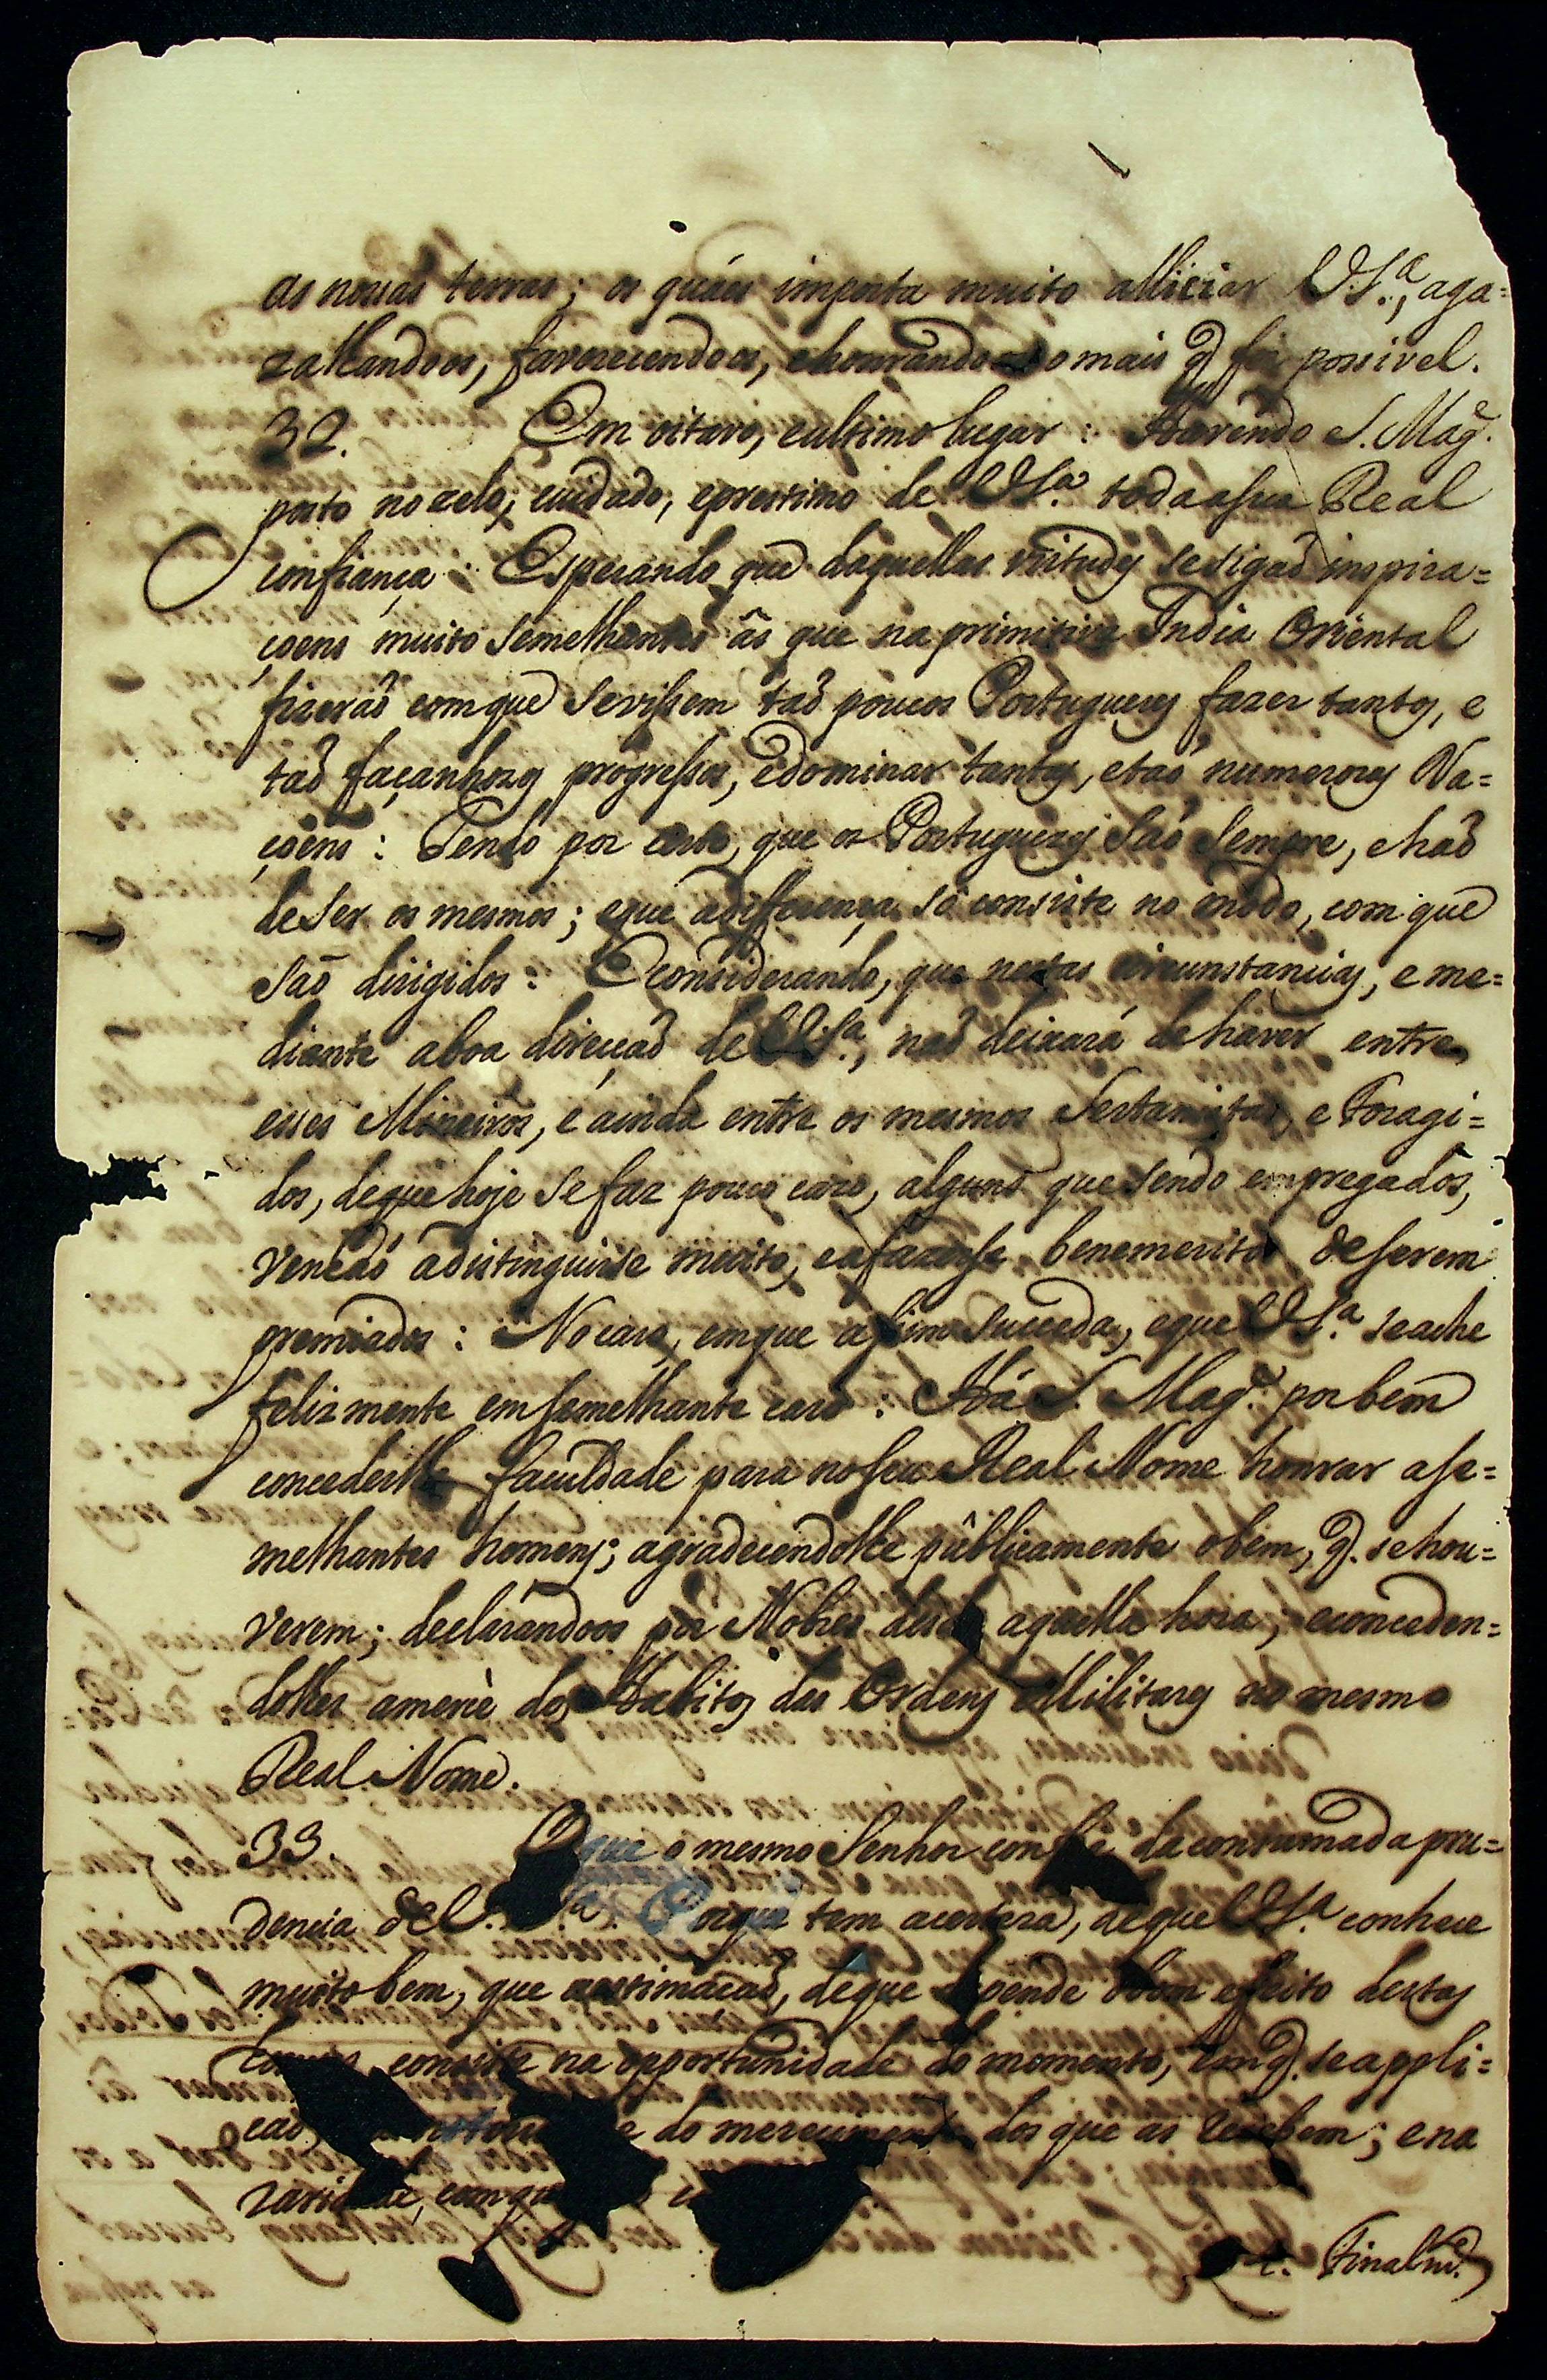 as nossas terras; os quáes importa muito alliciar V.S.ª, aga=
zalhandoos, favorecendoos, e honrando o mais q̃ for possivel.
32. Em oitavo, e ultimo lugar: Havendo S. Mag.e
posto no zelo, cuidado, e prestimo de V.S.ª toda a sua Real
confiança: Esperando que daquellas virtudes se sigaõ inspira=
çoens muito semelhantes âs que na primitiva India Oriental
fizeraõ com que se vissem taõ poucos Portuguezes fazer tantos, e
taõ façanhozos progressos, e dominar tantas, e taõ numerozas Na=
çoens: Tendo por certo, que os Portuguezes saõ sempre, e haõ
de ser os mesmos; e que a differença só consiste no modo, com que
saõ dirigidos: E considerando, que nestas circunstancias, e me=
diante a boa direcçaõ de V.S.ª, naõ deixará de haver entre
esses Mineiros, e ainda entre os mesmos Sertanistas, e Foragi=
dos, de que hoje se faz pouco cazo, alguns que sendo empregados,
venhaõ a distinguirse muito, e a fazerse benemeritos de serem
premiados: No cazo, em que assim succeda, e que V.S.ª se ache
felizmente em semelhante cazo: Há S. Mag.e por bem
concederlhe faculdade para no seu Real Nome honrar a se=
melhantes homens; agradecendolhe pûblicamente o bem, q̃. se hou=
verem; declarandoos por Nobres desde aquella hora; e conceden=
dolhes a mercè dos Habitos das Ordens Militares no mesmo
Real Nome.
33. O que o mesmo Senhor confia da consumada pru=
dencia de V. S.ª Porque tem a certeza, de que V.S.ª conhece
muito bem, que a estimaçaõ, de que depende o bom effeito destas
consiste na opportunidade do momento, em q̃. se appli=
caõ, do merecimento dos que as recebem; e na
raridade, com que
Finalm.e